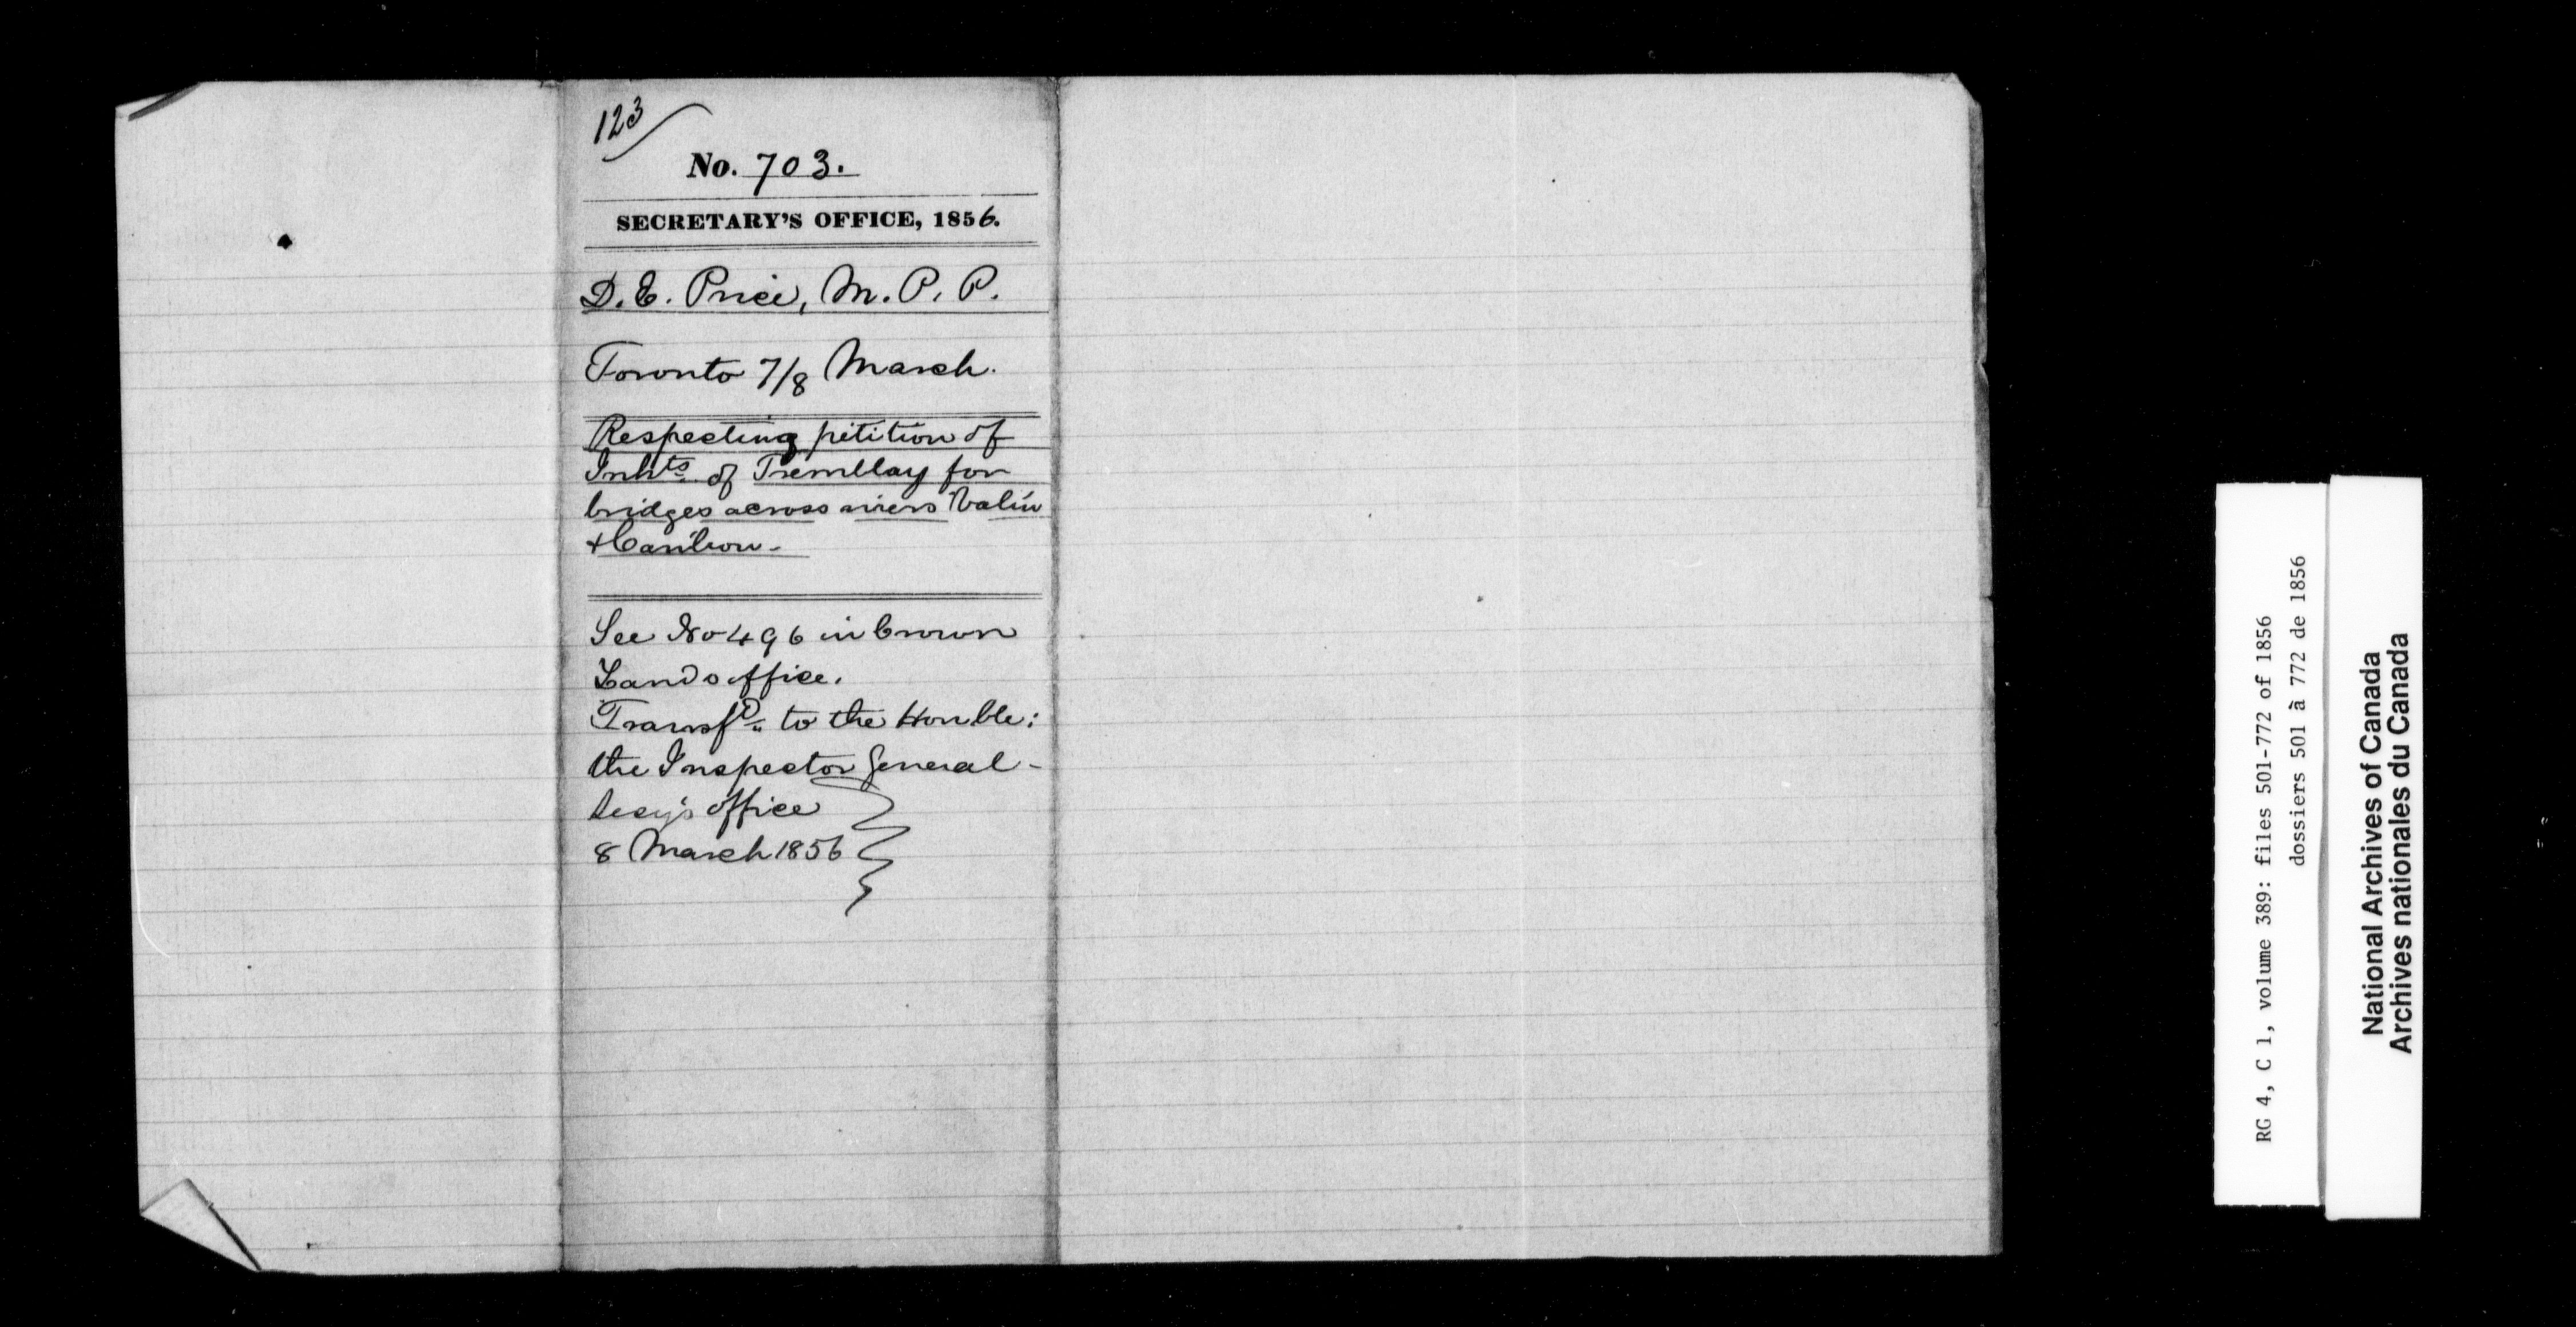 123
No. 703.
SECRETARY'S OFFICE, 1856.
D. E. Price, M. P. P.
Toronto 7/8 March.
Respecting petition of
Inhts. of Tremblay for
bridges across rivers Valin
& Caribou.
See No 496 in Crown
Land office.
Transfd. to the Honble:
the Inspector General -
Secy's office
8 March 1856
RG 4, C 1, volume 389: files 501-772 of 1856
dossiers 501 à 772 de 1856
National Archives of Canada
Archives nationales du Canada